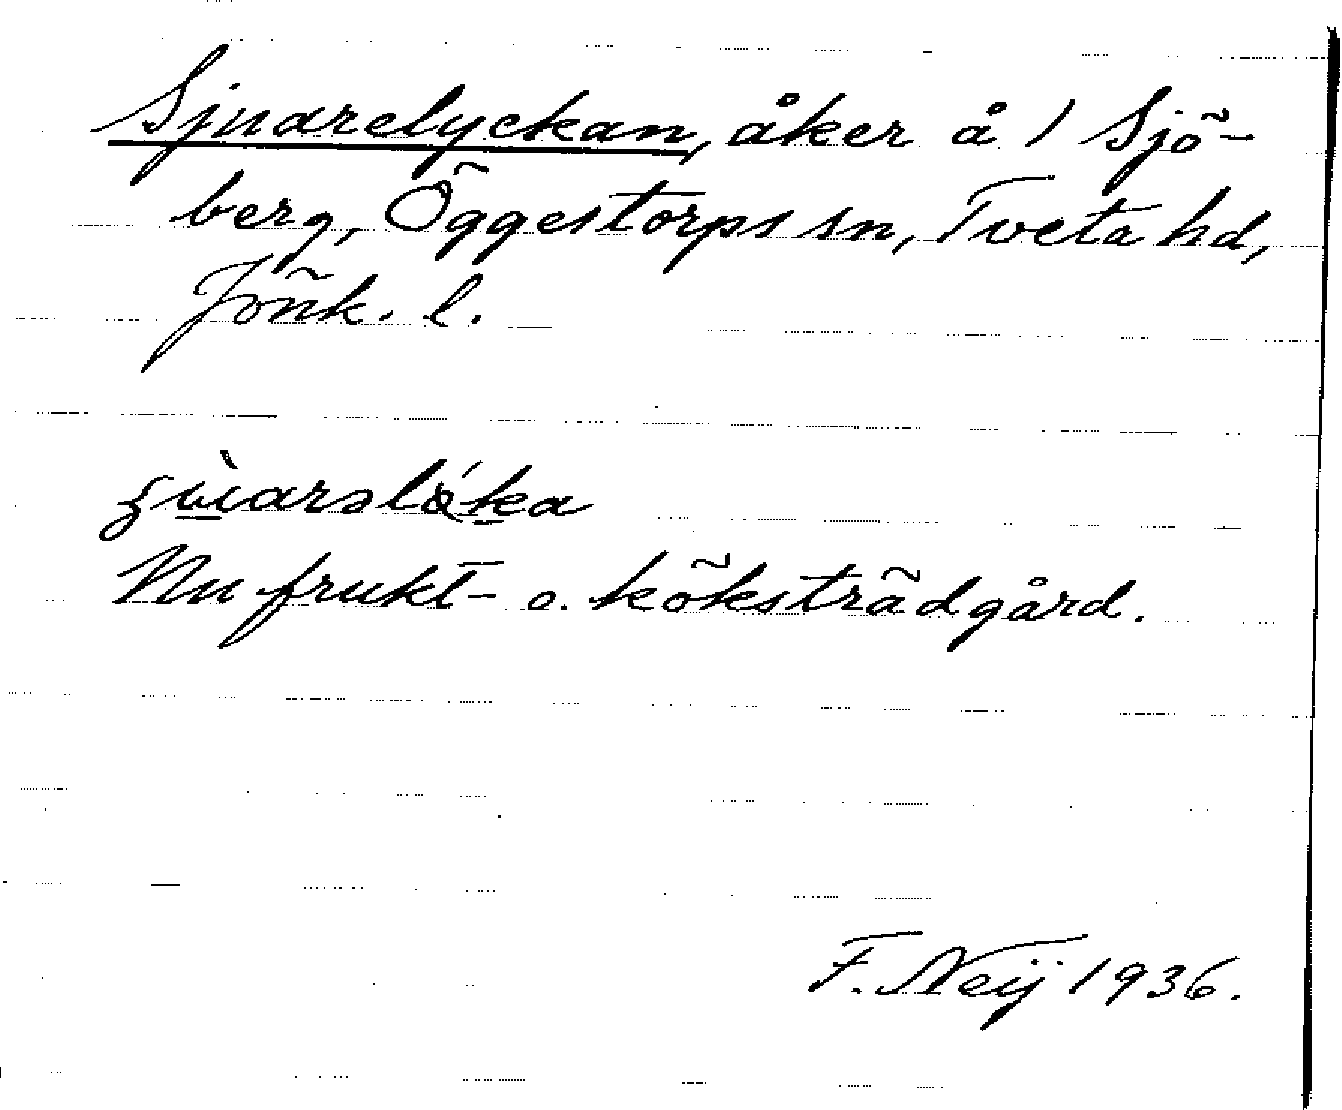 Sjuarelyckan, åker å 1 Sjö-
berg, Öggestorps sn, Tveta hd,
Jönk. l.
Nu frukt- o. köksträdgård.
F. Neij 1936.